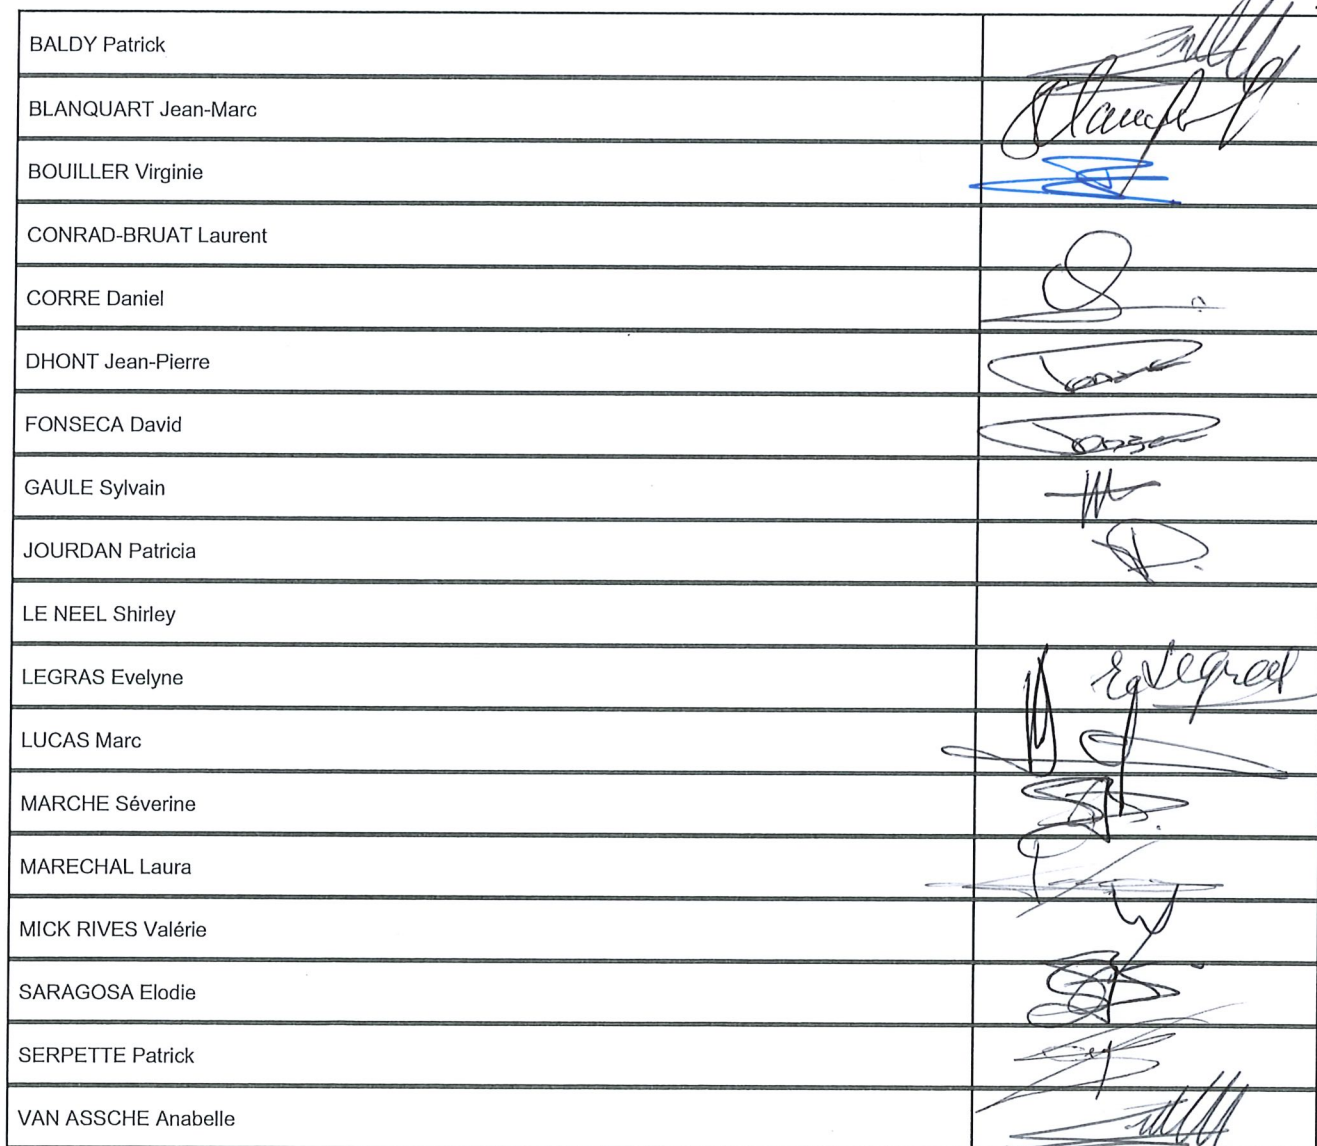 BALDY Patrick
BLANQUART Jean-Marc
BOUILLER Virginie
CONRAD-BRUAT Laurent
CORRE Daniel
DHONT Jean-Pierre
FONSECA David
GAULE Sylvain
JOURDAN Patricia
LE NEEL Shirley
LEGRAS Evelyne
LUCAS Marc
MARCHE Séverine
MARECHAL Laura
MICK RIVES Valérie
SARAGOSA Elodie
SERPETTE Patrick
VAN ASSCHE Anabelle